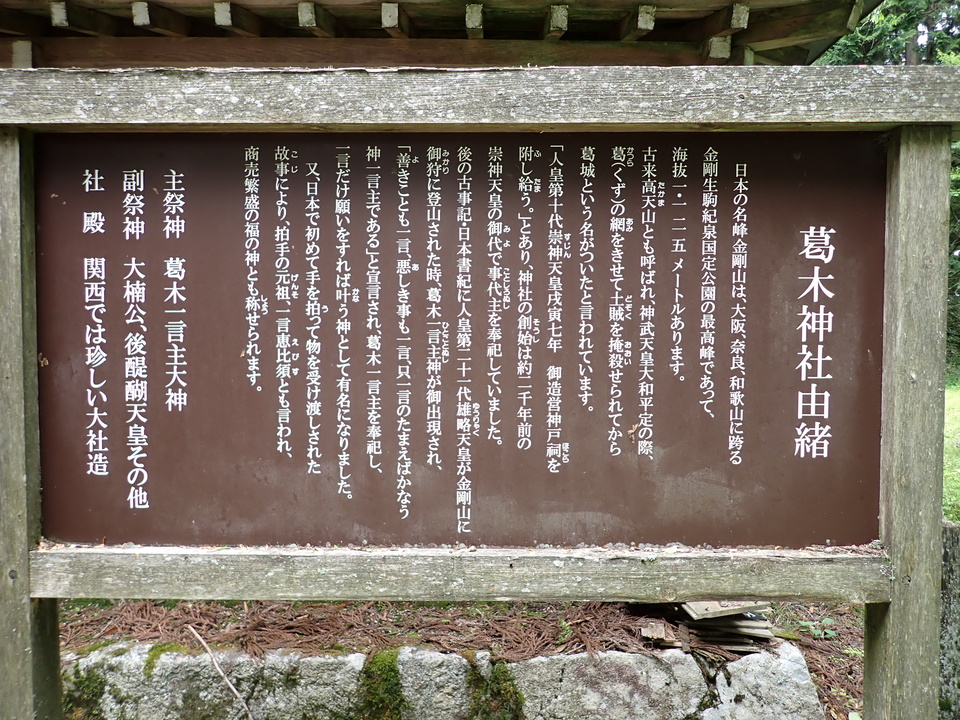 葛木神社由緒
日本の名峰金剛山は、大阪、奈良、和歌山に跨る
金剛生駒紀泉国定公園の最高峰であって、
海抜一・一二五メートルあります。
古来高天山とも呼ばれ、神武天皇大和平定の際、
葛(くず)の網をきせて土賊を掩殺せられてから
葛城という名がついたと言われています。
「人皇第十代崇神天皇戌寅七年　御造営神戸祠を
附し給う。」とあり、神社の創始は約二千年前の
崇神天皇の御代で事代主を奉祀していました。
後の古事記・日本書紀に人皇第二十一代雄略天皇が金剛山に
御狩に登山された時、葛木一言主神が御出現され、
「善きことも一言、悪しき事も一言、只一言のたまえばかなう
神一言主であること宣言され、葛木一言主を奉祀し、
一言だけ願いをすれば叶う神として有名になりました。
又、日本で初めて手を拍って物を受け渡しされた
故事により、拍手の元祖、一言恵比須とも言われ、
商売繁盛の福の神とも称せられます。
主祭神　葛木一言主大神
副祭神　大楠公、後醍醐天皇その他
社　殿　関西では珍しい大社造